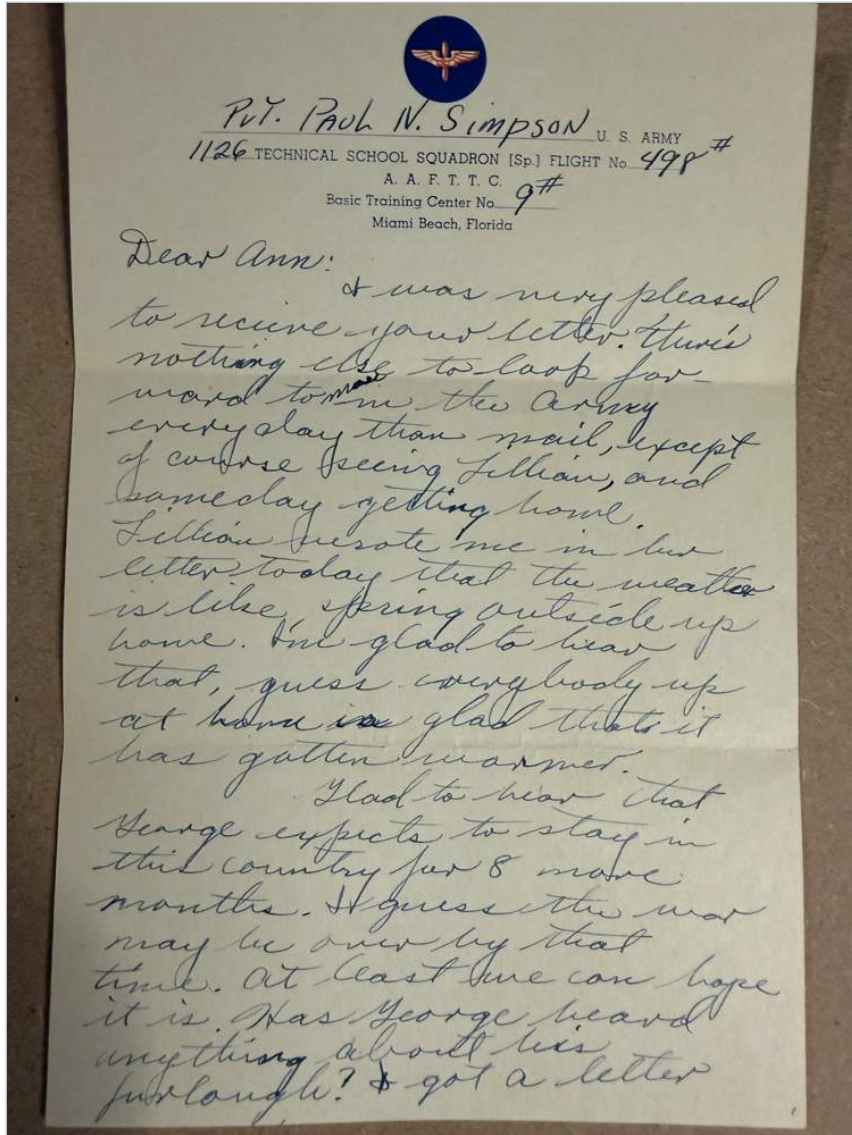 Pvt. Paul N. Simpson U. S. ARMY
1126 TECHNICAL SCHOOL SQUADRON (Sp.) FLIGHT No. 498 #
A. A. F. T. T. C.
Basic Training Center No. 9 #
Miami Beach, Florida
Dear Ann:
I was very pleased
to recieve your letter. There's
nothing else to look for-
ward to more in the Army
everyday than mail, except
of course seeing Lillian, and
someday getting home.
Lillian wrote me in her
letter today that the weather
is like spring outside up
home. I'm glad to hear
that, guess everybody up
at home is glad that it
has gotten warmer.
Glad to hear that
George expects to stay in
this country for 8 more
months. I guess the war
may be over by that
time. At least we can hope
it is. Has George heard
anything about his
furlough? I got a letter